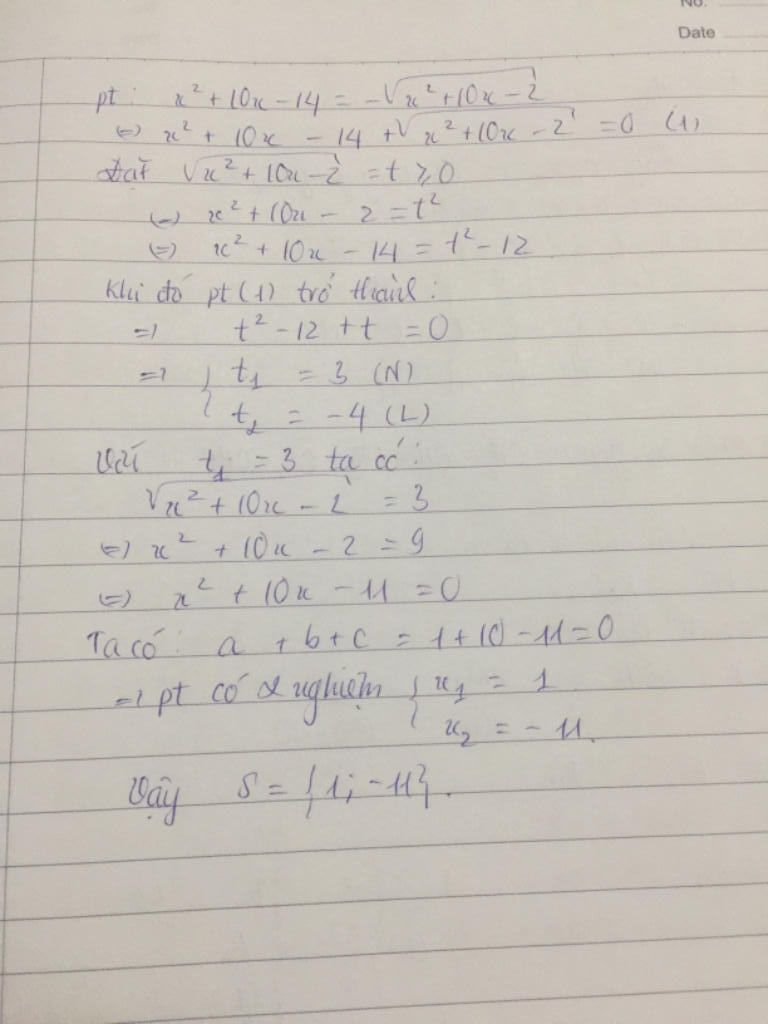 No.
Date
pt: x² + 10x - 14 = -√(x² + 10x - 2)
(=) x² + 10x - 14 + √(x² + 10x - 2) = 0 (1)
Đặt √(x² + 10x - 2) = t ≥ 0
(=) x² + 10x - 2 = t²
(=) x² + 10x - 14 = t² - 12
Khi đó pt (1) trở thành:
=) t² - 12 + t = 0
=) { t₁ = 3 (N)
{ t₂ = -4 (L)
Với t₁ = 3 ta có:
√(x² + 10x - 2) = 3
(=) x² + 10x - 2 = 9
(=) x² + 10x - 11 = 0
Ta có: a + b + c = 1 + 10 - 11 = 0
=) pt có 2 nghiệm { x₁ = 1
x₂ = -11.
Vậy S = {1; -11}.